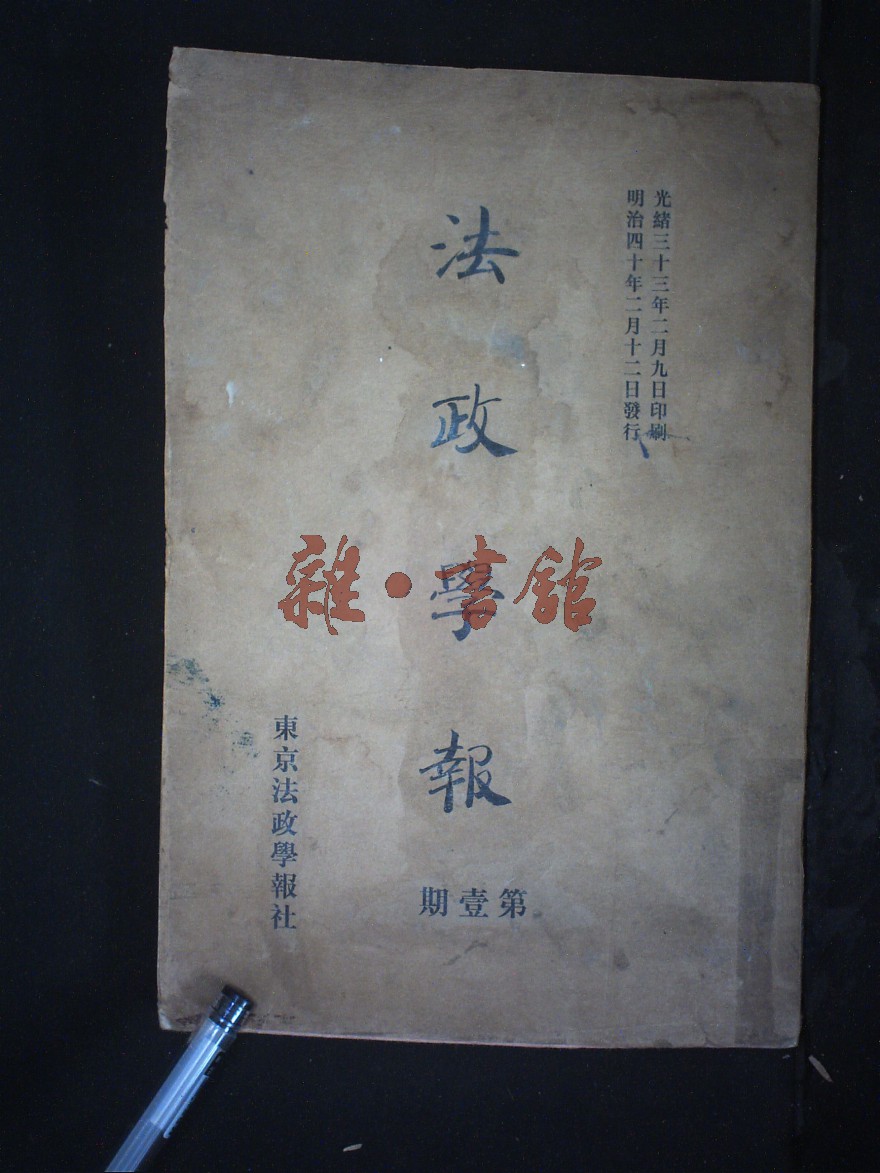 光緒三十三年二月九日印刷
明治四十年二月十二日發行
法政學報
第壹期
東京法政學報社
雜·書館